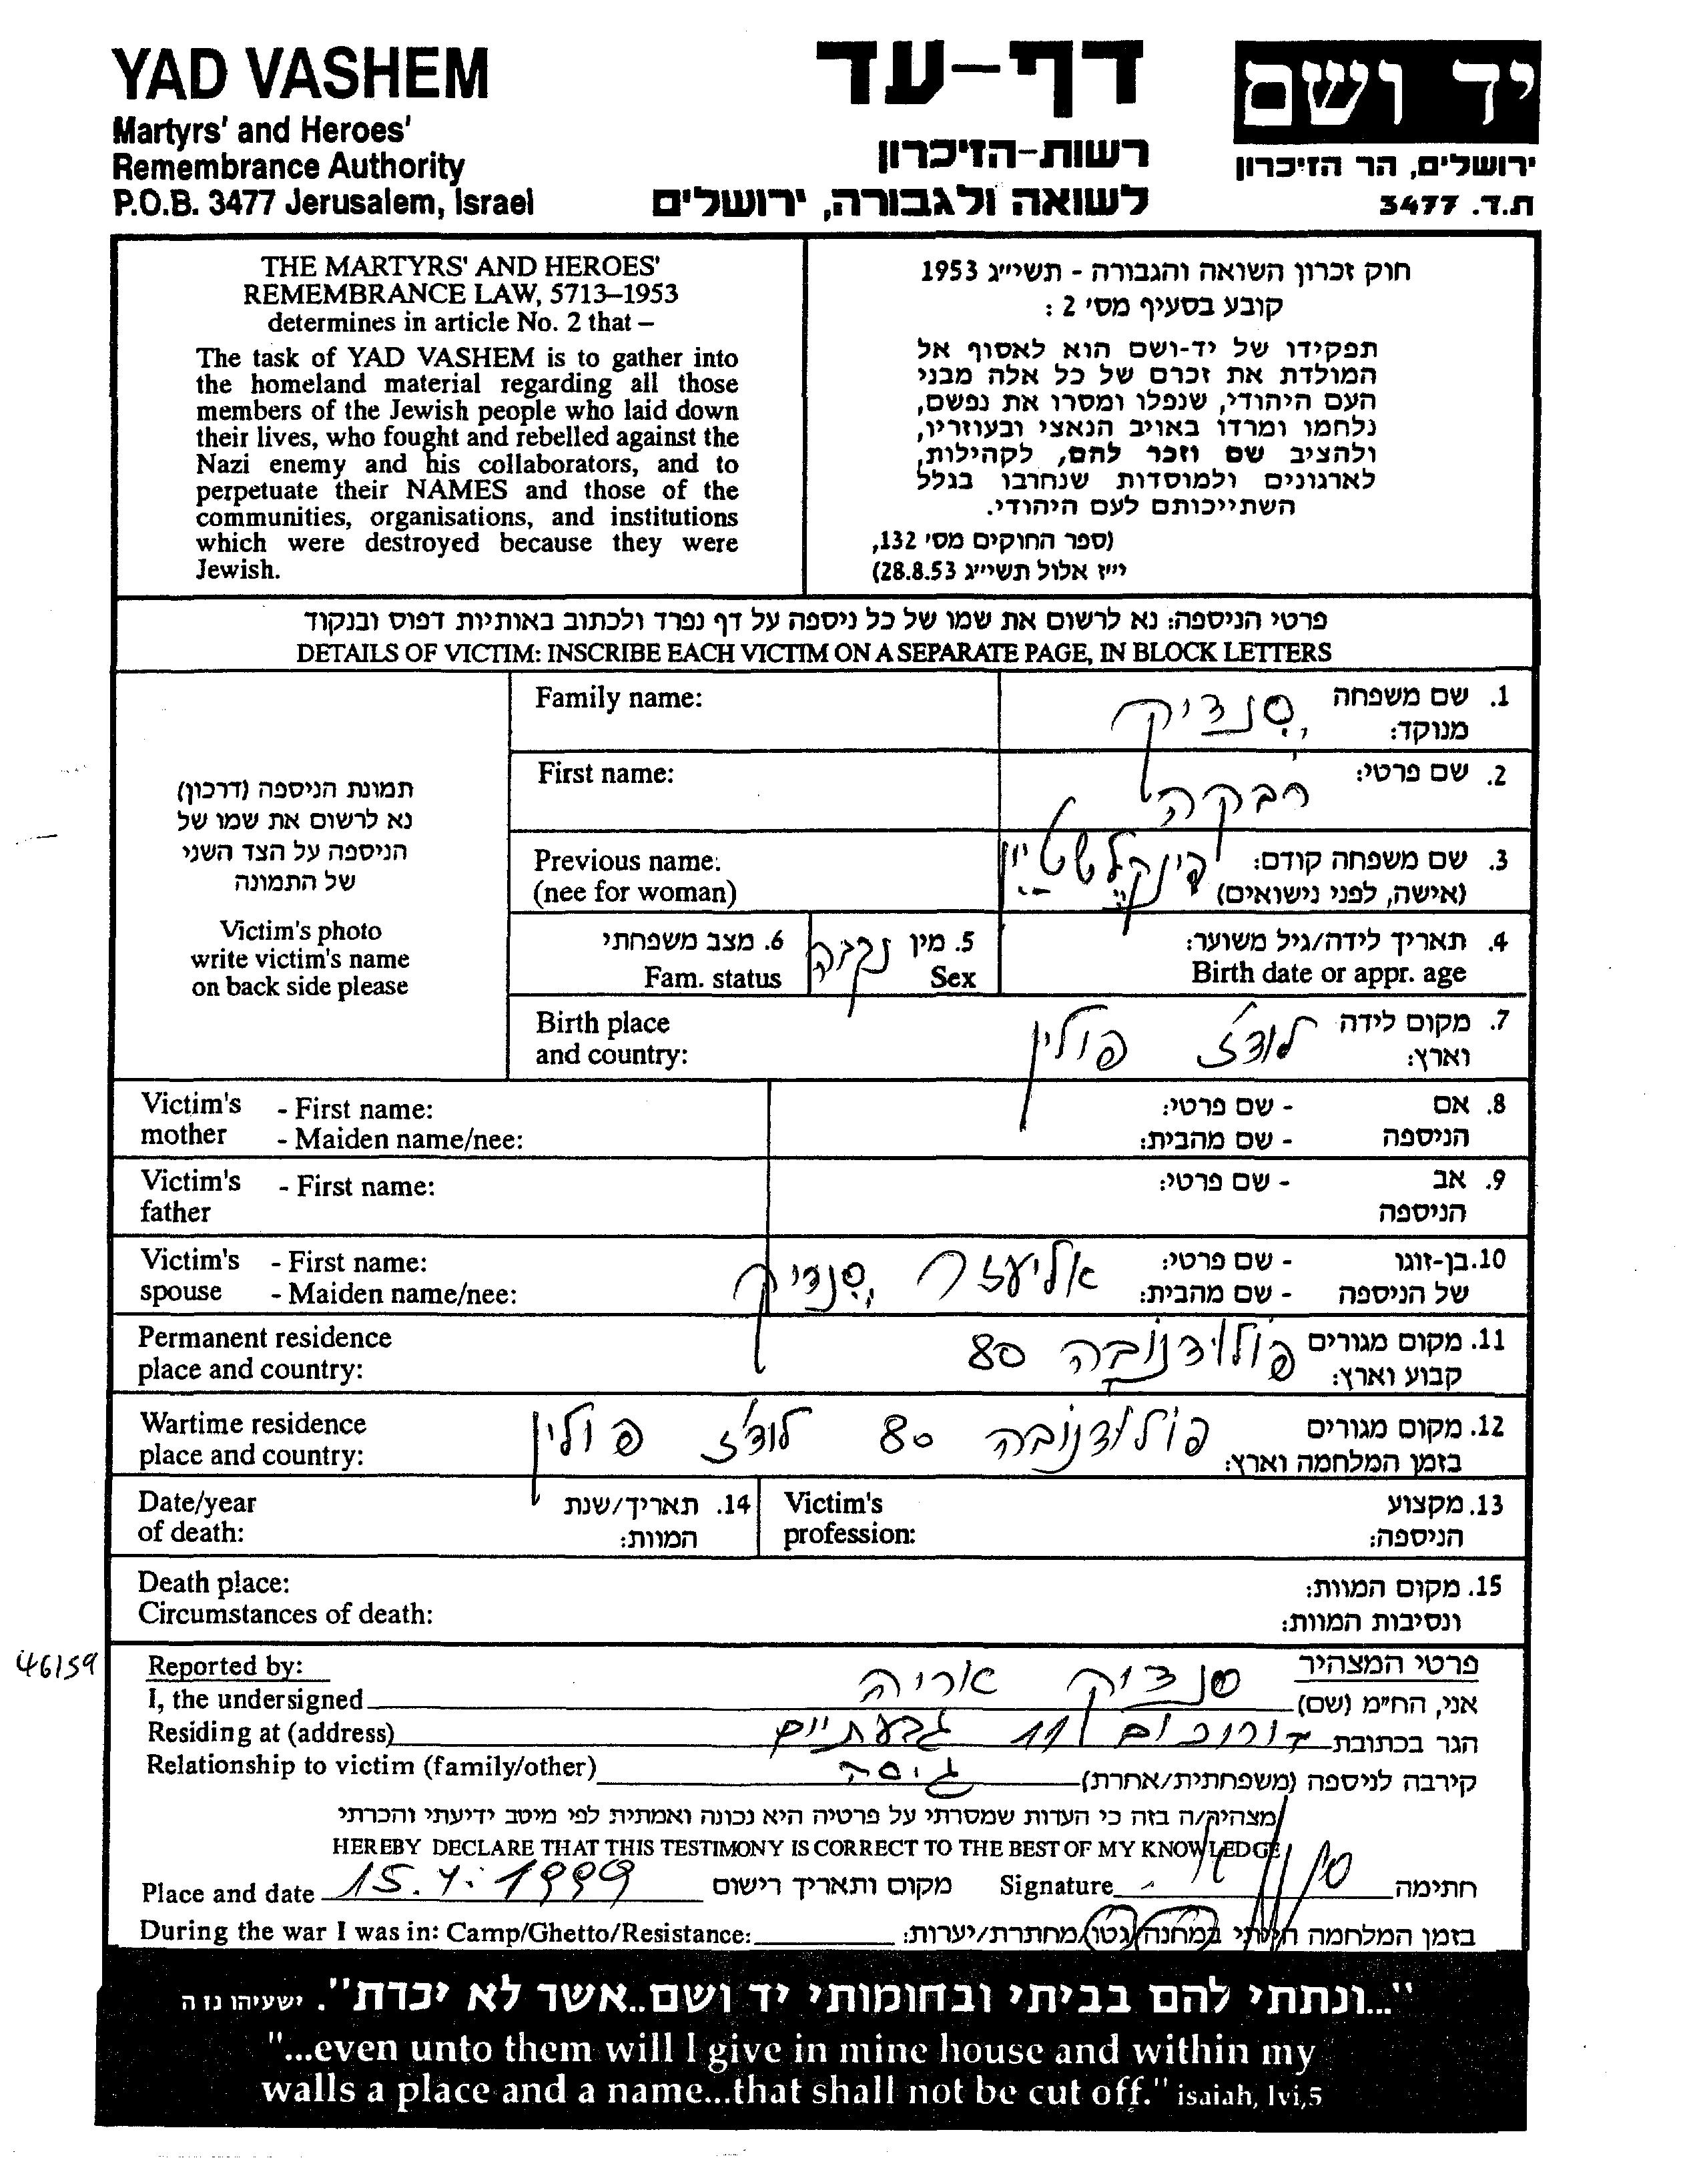 YAD VASHEM
Martyrs' and Heroes'
Remembrance Authority
P.O.B. 3477 Jerusalem, Israel
דף-עד
רשות-הזיכרון
לשואה ולגבורה, ירושלים
יד ושם
ירושלים, הר הזיכרון
ת.ד. 3477
THE MARTYRS' AND HEROES'
REMEMBRANCE LAW, 5713–1953
determines in article No. 2 that –
The task of YAD VASHEM is to gather into
the homeland material regarding all those
members of the Jewish people who laid down
their lives, who fought and rebelled against the
Nazi enemy and his collaborators, and to
perpetuate their NAMES and those of the
communities, organisations, and institutions
which were destroyed because they were
Jewish.
חוק זכרון השואה והגבורה - תשי״ג 1953
קובע בסעיף מס׳ 2 :
תפקידו של יד-ושם הוא לאסוף אל
המולדת את זכרם של כל אלה מבני
העם היהודי, שנפלו ומסרו את נפשם,
נלחמו ומרדו באויב הנאצי ובעוזריו,
ולהציב שם וזכר להם, לקהילות,
לארגונים ולמוסדות שנחרבו בגלל
השתייכותם לעם היהודי.
(ספר החוקים מס׳ 132,
י״ז אלול תשי״ג 28.8.53)
פרטי הניספה: נא לרשום את שמו של כל ניספה על דף נפרד ולכתוב באותיות דפוס ובנקוד
DETAILS OF VICTIM: INSCRIBE EACH VICTIM ON A SEPARATE PAGE, IN BLOCK LETTERS
תמונת הניספה (דרכון)
נא לרשום את שמו של
הניספה על הצד השני
של התמונה
Victim's photo
write victim's name
on back side please
Family name: סנדיק 1. שם משפחה
מנוקד:
First name: רבקה 2. שם פרטי:
Previous name: פינקלשטיין 3. שם משפחה קודם:
(nee for woman) (אישה, לפני נישואים)
6. מצב משפחתי 5. מין נקבה 4. תאריך לידה/גיל משוער:
Fam. status Sex Birth date or appr. age
Birth place לודז' פולין 7. מקום לידה
and country: וארץ:
Victim's - First name: - שם פרטי: 8. אם
mother - Maiden name/nee: - שם מהבית: הניספה
Victim's - First name: - שם פרטי: 9. אב
father הניספה
Victim's - First name: אליעזר סנדיק - שם פרטי: 10. בן-זוגו
spouse - Maiden name/nee: - שם מהבית: של הניספה
Permanent residence פולודנובה 80 11. מקום מגורים
place and country: קבוע וארץ:
Wartime residence פולודנובה 80 לודז' פולין 12. מקום מגורים
place and country: בזמן המלחמה וארץ:
Date/year 14. תאריך/שנת Victim's 13. מקצוע
of death: המוות: profession: הניספה:
Death place: 15. מקום המוות:
Circumstances of death: ונסיבות המוות:
46159
Reported by: פרטי המצהיר
I, the undersigned סנדיק אריה אני, הח״מ (שם)
Residing at (address) 11 גבעתיים הגר בכתובת
Relationship to victim (family/other) גיסה קירבה לניספה (משפחתית/אחרת)-
מצהיר/ה בזה כי העדות שמסרתי על פרטיה היא נכונה ואמתית לפי מיטב ידיעתי והכרתי
HEREBY DECLARE THAT THIS TESTIMONY IS CORRECT TO THE BEST OF MY KNOWLEDGE
Place and date 15.4.1999 מקום ותאריך רישום Signature חתימה
During the war I was in: Camp/Ghetto/Resistance: בזמן המלחמה הייתי במחנה/גטו/מחתרת/יערות:
"...ונתתי להם בביתי ובחומותי יד ושם..אשר לא יכרת". ישעיהו נו ה
"...even unto them will I give in mine house and within my
walls a place and a name...that shall not be cut off." isaiah, lvi,5